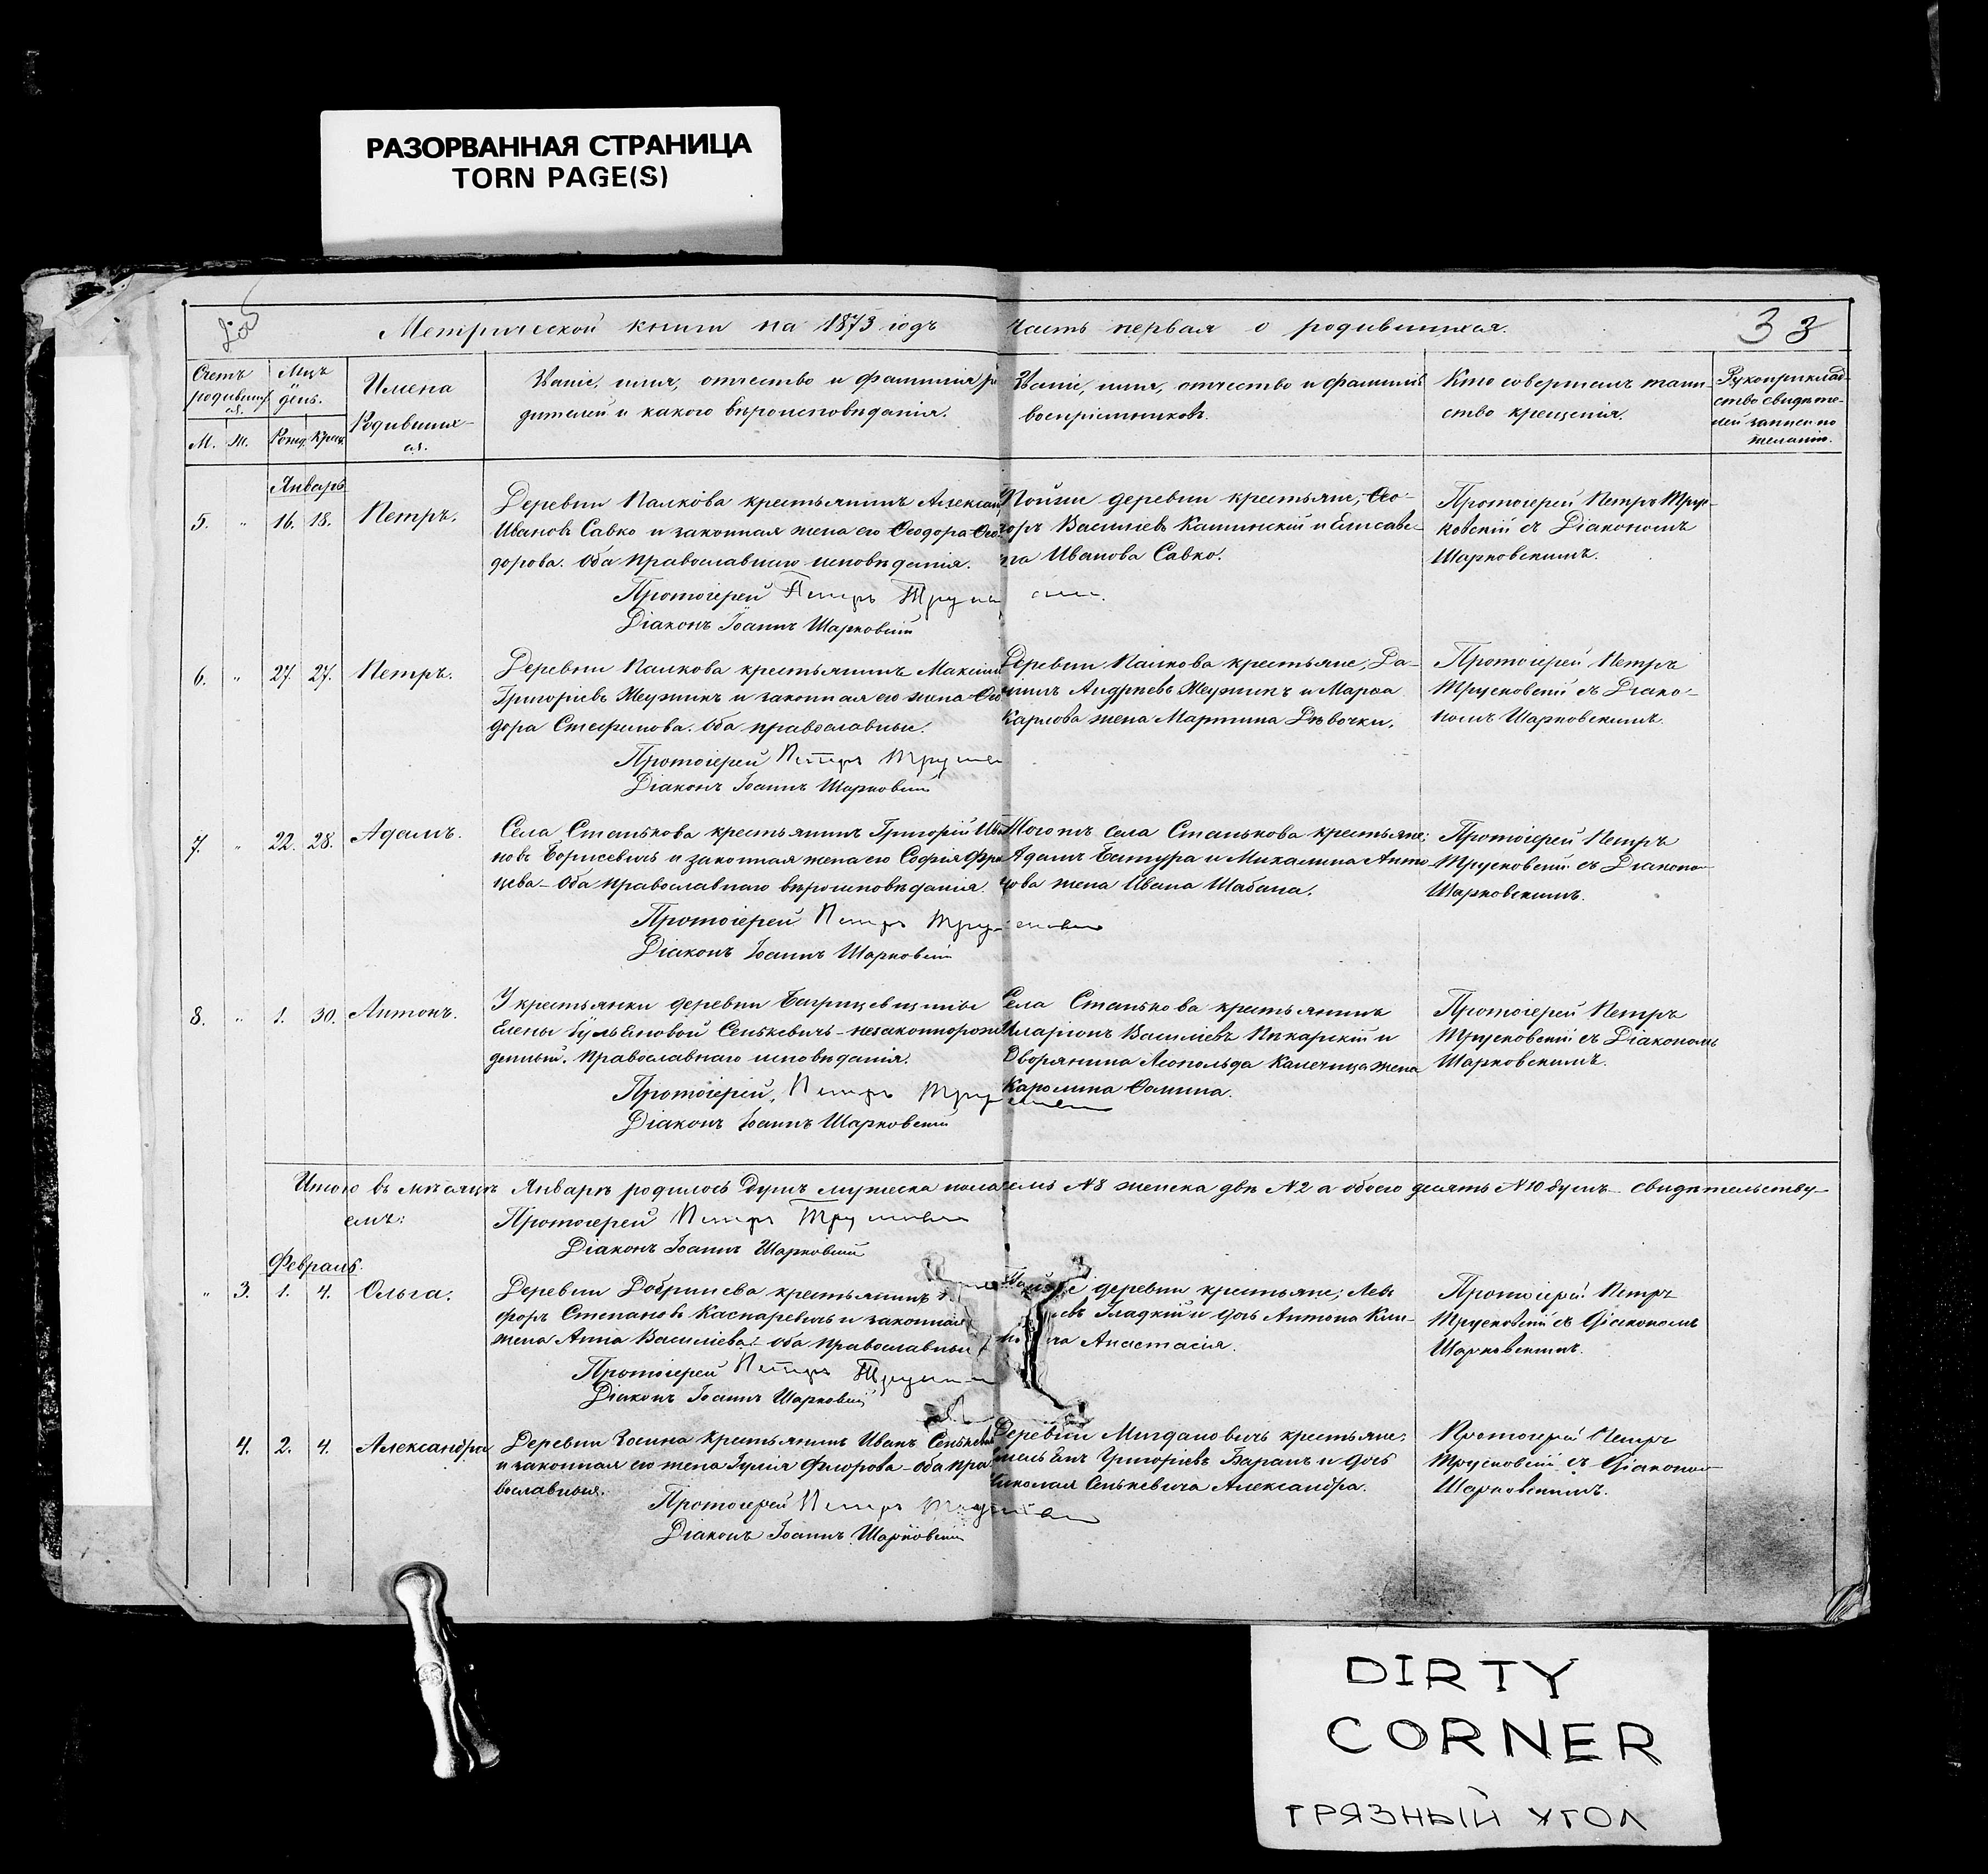 РАЗОРВАННАЯ СТРАНИЦА
TORN PAGE(S)
Метрической книги на 1873 годъ часть первая о родившихся. 33
Счетъ родившихся.
М. Ж.
Мцъ и день.
Рожд. Крещ.
Имена Родившихся.
Званіе, имя, отчество и фамилія родителей и какого вѣроисповѣданія.
Званіе, имя, отчество и фамилія воспріемниковъ.
Кто совершалъ таинство крещенія.
Рукоприкладство свидѣтелей записи по желанію.
Январь
5. " 16. 18. Петръ.
Деревни Палкова крестьянинъ Александ
Ивановъ Савко и законная жена его Ѳеодора Ѳео
дорова. Оба православнаго исповѣданія.
Протоіерей Петръ
Діаконъ Іоаннъ Шарковскій
деревни крестьяне, Ѳео-
доръ Василіевъ Каминскій и Елисаве-
та Иванова Савко.
Протоіерей Петръ Трус-
ковскій съ Діакономъ
Шарковскимъ.
6. " 27. 27. Петръ.
Деревни Палкова крестьянинъ Максим
Григоріевъ Жеужикъ и законная его жена Ѳео
дора Стефанова. Оба православные.
Протоіерей Петръ
Діаконъ Іоаннъ Шарковскій
Деревни Палкова крестьяне, Да-
ніилъ Андреевъ Жеужикъ и Марѳа
Карлова жена Мартина Дѣвочки.
Протоіерей Петръ
Трусковскій съ Діако-
номъ Шарковскимъ.
7. " 22. 28. Адамъ.
Села Станькова крестьянинъ Григорій Ива
новъ Борисевичъ и законная жена его Софія Фра
цева - Оба православнаго вѣроисповѣданія.
Протоіерей Петръ
Діаконъ Іоаннъ Шарковскій
Тогожъ села Станькова крестьяне;
Адамъ Батура и Михалина Анто
нова жена Ивана Шабана.
Протоіерей Петръ
Трусковскій съ Діаконо
Шарковскимъ.
8. " 1. 30. Антонъ.
У крестьянки деревни
Елены Сенькевичъ - незаконнорож
денный. Православнаго исповѣданія.
Протоіерей, Петръ
Діаконъ Іоаннъ Шарковскій
Села Станькова крестьянинъ
Иларіонъ Василіевъ Пекарскій и
Дворянина Леопольда Калечица жена
Каролина Ѳомина.
Протоіерей Петръ
Трусковскій съ Діакономъ
Шарковскимъ.
Итого въ мѣсяцѣ Январѣ родилось душъ мужеска пола осмь N8 женска двѣ N2 а обоего десять N10 душъ - свидѣтельству-
емъ:
Протоіерей Петръ
Діаконъ Іоаннъ Шарковскій
Февраль.
" 3. 1. 4. Ольга.
Деревни Добринева крестьянинъ
форъ Степановъ Каспаревичъ и законная
жена Анна Василіева - оба православные
Протоіерей Петръ
Діаконъ Іоаннъ Шарковскій
деревни крестьяне; Левъ
Гладкій и дочь Антона
Анастасія.
Протоіерей Петръ
Трусковскій съ Діакономъ
Шарковскимъ.
4. 2. 4. Александра
Деревни Зосина крестьянинъ Иванъ Сенькевич
и законная его жена Іулія Флорова - оба пра
вославные.
Протоіерей Петръ
Діаконъ Іоаннъ Шарковскій
Деревни Мигдаловичъ крестьяне;
Емельянъ Григоріевъ Баранъ и дочь
Николая Сенькевича Александра.
Протоіерей Петръ
Трусковскій съ Діаконом
Шарковскимъ.
DIRTY
CORNER
ГРЯЗНЫЙ УГОЛ